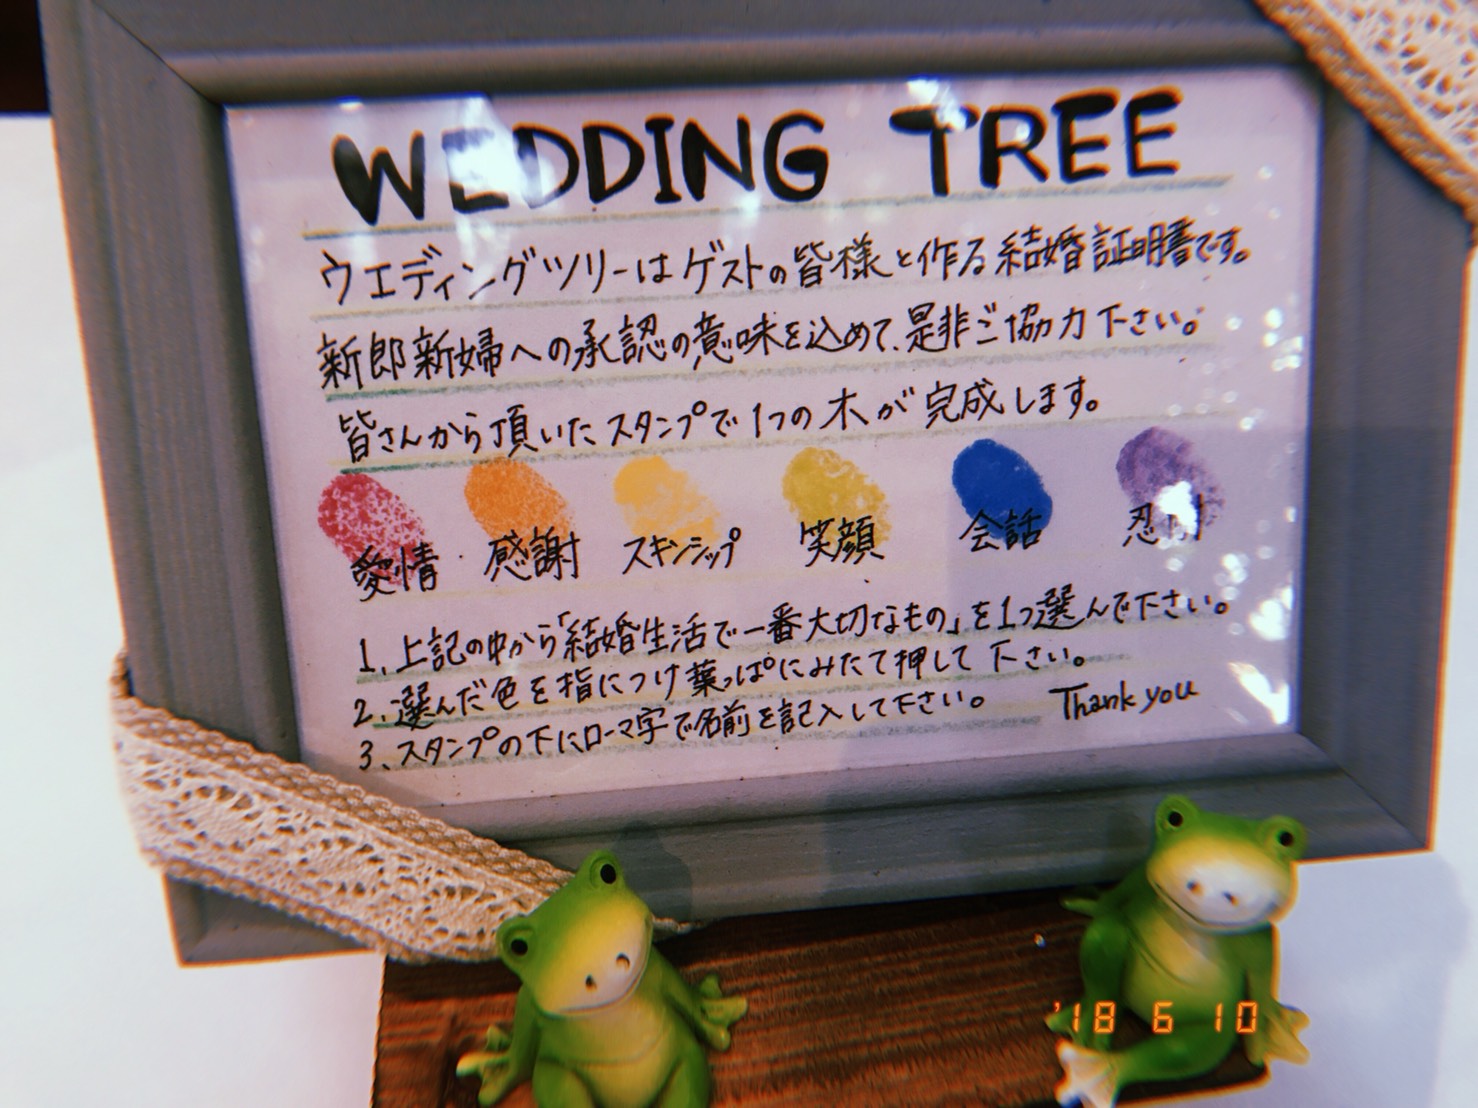 WEDDING TREE
ウエディングツリーはゲストの皆様と作る結婚証明書です。
新郎新婦への承認の意味を込めて、是非ご協力下さい。
皆さんから頂いたスタンプで1つの木が完成します。
愛情 感謝 スキンシップ 笑顔 会話 忍耐
1、上記の中から「結婚生活で一番大切なもの」を1つ選んで下さい。
2、選んだ色を指につけ葉っぱにみたて押して下さい。
3、スタンプの下にローマ字で名前を記入して下さい。
Thank you
'18 6 10